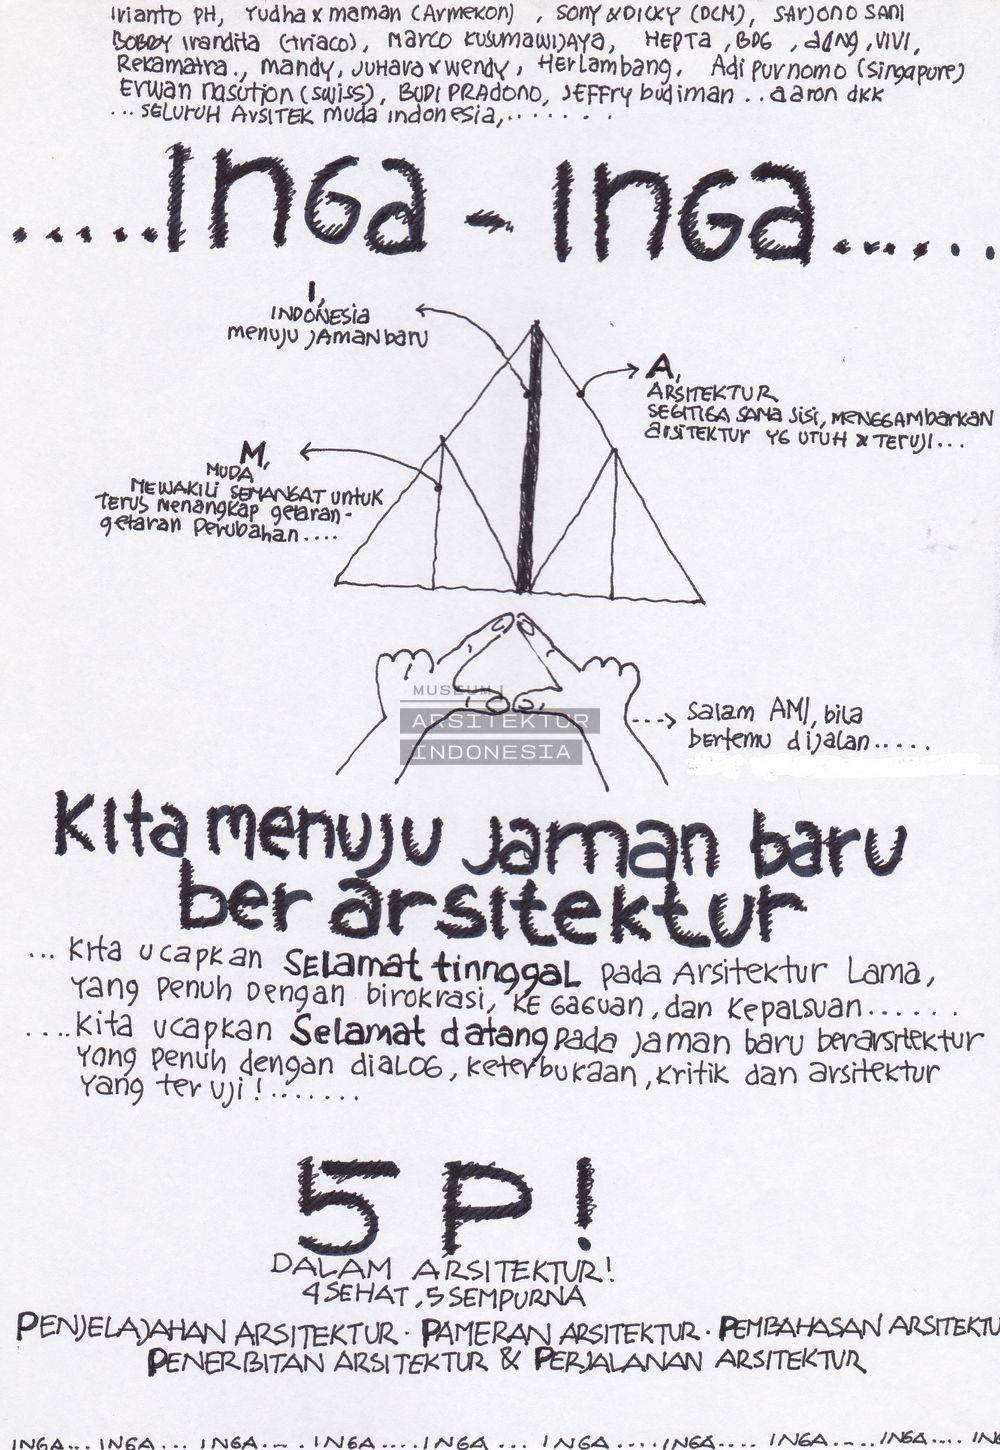 Irianto PH, Yudha x maman (Armekon) , SONY &DICKY (DCM), SArjono SANI
BOBBY Irandita (triaco), Marco KUSUMAWIJAYA, HEPTA , BDG , adng, VIVI,
Rekamatra., mandy, JUHara x wendy, HErLambang, Adi Purnomo (Singapure)
Erwan nasution (SWISS), BUDI PRAdono, JEFFry budiman .. aaron dkk
...SELURUH ArSITEK muda indonesia,.......
.....INGA - INGA......
I,
INDONESIA
menuju jAman baru
A,
ARSITEKTUR
SEGITIGA SAMA SISI, MENGGAMbarkan
arsitektur YG UTUH & TERUJI...
M,
MUDA
MEWAKILI SEMANGAT untuk
TERUS Menangkap getaran-
getaran Perubahan....
MUSEUM
ARSITEKTUR
INDONESIA
Salam AMI, bila
bertemu dijalan.....
Kita menuju jaman baru
ber arsitektur
... Kita ucapkan SELamat tinnggaL pada Arsitektur Lama,
Yang Penuh Dengan birokrasi, KE GAGUan, dan Kepalsuan......
....Kita ucapkan Selamat datang pada jaman baru berarsitektur
Yang Penuh dengan diaLOG, keterbukaan, kritik dan arsitektur
Yang teruji!.......
5 P!
DALAM ARSITEKTUR!
4 SEHAT, 5 SEMPURNA
PENJELAJAHAN ARSITEKTUR · PAMERAN ARSITEKTUR · PEMBAHASAN ARSITEKTU
PENERBITAN ARSITEKTUR & PERJALANAN ARSITEKTUR
INGA... INGA... INGA.... INGA....INGA ... INGA .... INGA.... INGA..... INGA.... IN